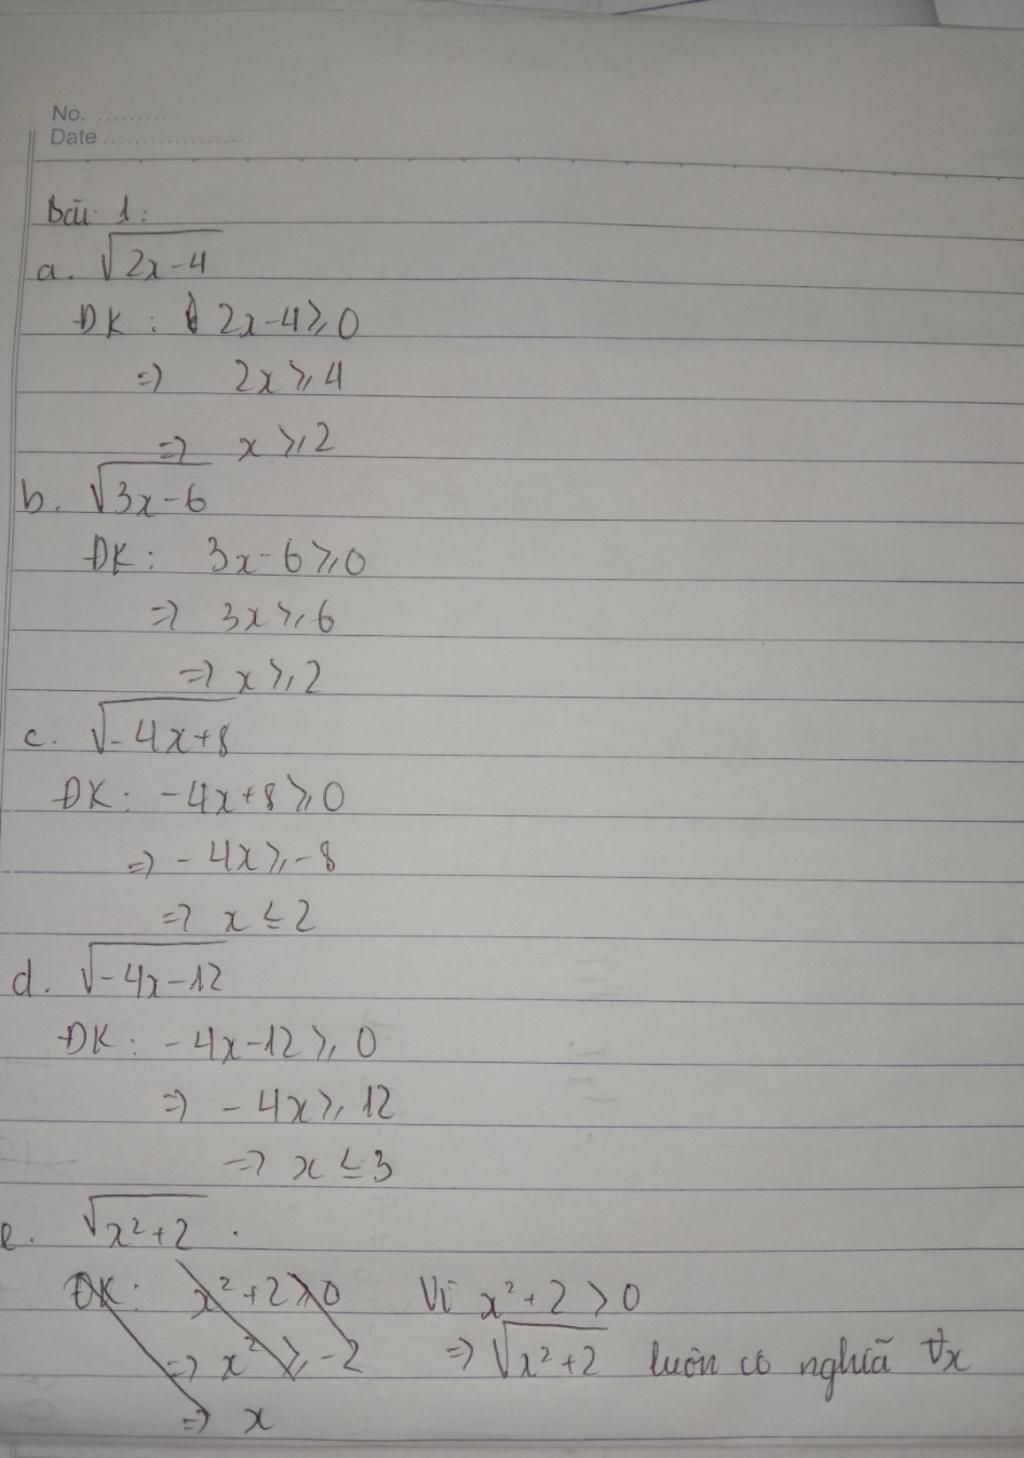 No. .........
Date ...................
Bài 1:
a. √2x-4
ĐK: 2x-4 ≥ 0
=> 2x ≥ 4
=> x ≥ 2
b. √3x-6
ĐK: 3x-6 ≥ 0
=> 3x ≥ 6
=> x ≥ 2
c. √-4x+8
ĐK: -4x+8 ≥ 0
=> -4x ≥ -8
=> x ≤ 2
d. √-4x-12
ĐK: -4x-12 ≥ 0
=> -4x ≥ 12
=> x ≤ 3
e. √x²+2 .
ĐK: x²+2 ≥ 0 Vì x²+2 > 0
=> x² ≥ -2 => √x²+2 luôn có nghĩã ∀x
=> x